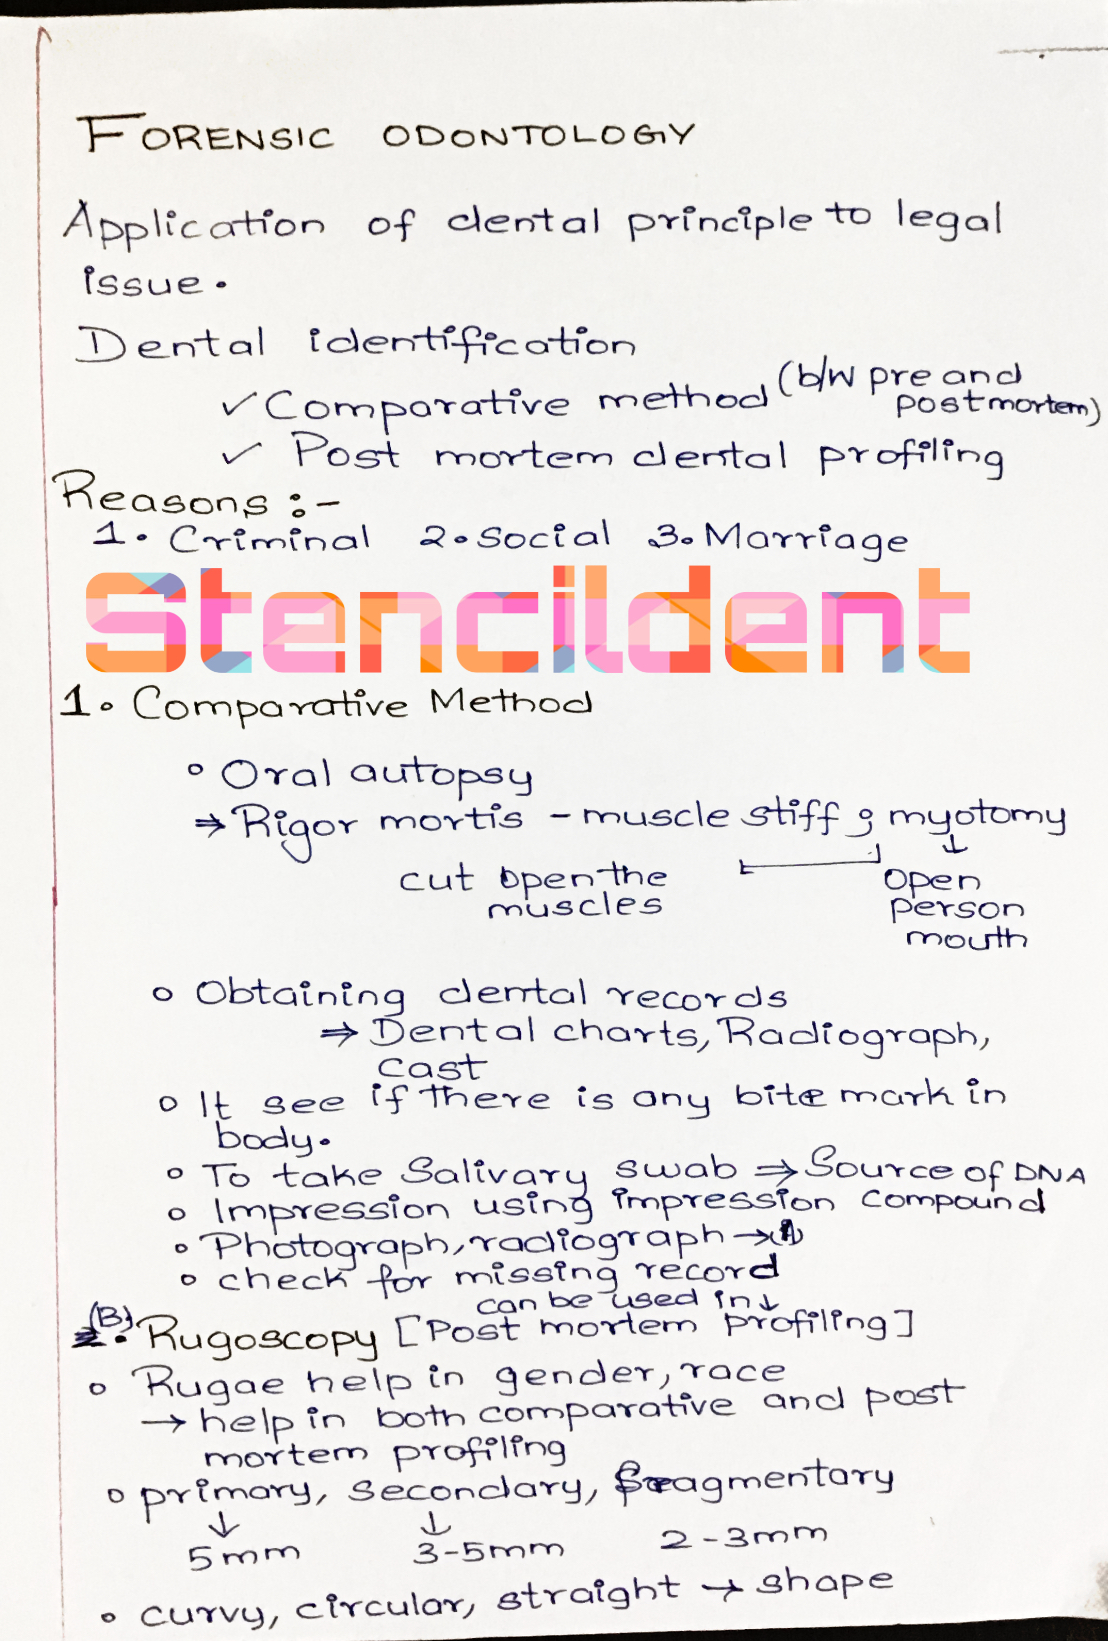 FORENSIC ODONTOLOGY
Application of dental principle to legal
issue.
Dental identification
✓ Comparative method (b/w pre and
postmortem)
✓ Post mortem dental profiling
Reasons :-
1. Criminal 2. Social 3. Marriage
Stencildent
1. Comparative Method
° Oral autopsy
⇒ Rigor mortis - muscle stiff ; myotomy
↓
cut open the
muscles
open
person
mouth
° Obtaining dental records
⇒ Dental charts, Radiograph,
cast
° It see if there is any bite mark in
body.
° To take Salivary swab ⇒ Source of DNA
° Impression using impression compound
° Photograph, radiograph →
° check for missing record
can be used in ↓
(B). Rugoscopy [Post mortem profiling]
° Rugae help in gender, race
→ help in both comparative and post
mortem profiling
° primary, secondary, fragmentary
↓ ↓
5mm 3-5mm 2-3mm
° curvy, circular, straight → shape